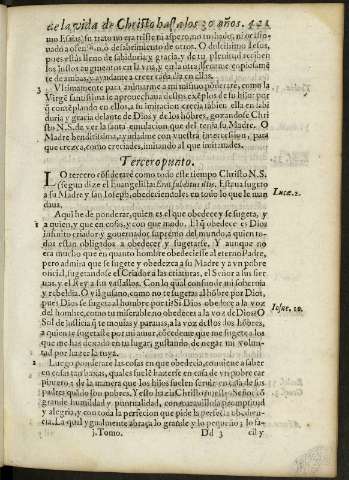 de la vida de Christo hasta los 30 años. 421
mo Esaias; su trato no era triste ni aspero,
nado a ofensiõ, o desabrimiento de otros. O dulcissimo Iesus,
pues estás lleno de sabiduria y gracia, y de tu plenitud reciben
los justos augmentos en la vna, y en la otra,
te de ambas, y ayudame a crecer cada dia en ellas.
3 Vltimamente para animarme a mi mismo põderarè, como la
Virgẽ santissima se aprouechaua destos exẽplos de su hijo: por
q̃ contẽplando en ellos, a su imitacion crecia tãbien ella en sabi
duria y gracia delante de Dios y de los hõbres, gozandose Chri
sto N.S. de ver la santa emulacion que del tenia su Madre. O
Madre benditissima, ayudadme con vuestra intercession, para
que crezca, como creciades, imitando al que imitauades.
Tercero punto.
LO tercero cõsiderarè como todo este tiempo Christo N.S.
(segun dize el Euangelista) Erat subditus illis. Estaua sugeto
a su Madre y san Ioseph, obedeciendoles en todo lo que le man
dauan.
Lucæ.2.
Aqui he de ponderar, quien es el que obedece y se sugeta, y
1 a quien, y que en cosas, y con que modo. El q̃ obedece es Dios
infinito criador y gouernador supremo del mundo, a quien to-
dos estan obligados a obedecer y sugetarse. Y aunque no
era mucho que en quanto hombre obedeciesse al eterno Padre,
pero admira que se sugete y obedezca a su Madre y a vn pobre
oficial, sugetandose el Criador a las criaturas, el Señor a sus sier
uas, y el Rey a sus vassallos. Con lo qual confundo mi soberuia
y rebeldia. O vil gusano, como no te sugetas al hõbre por Dios,
pues Dios se sugeta al hombre por ti? Si Dios obedece a la voz
del hombre, como tu miserable no obedeces a la voz de Dios? O
Iosue. 10.
Sol de justicia q̃ te mouias y parauas, a la voz destos dos hõbres,
a quien te sugetaste por mi amor, cõcedeme que me sugete a los
que me has dexado en tu lugar, gustando de negar mi volun-
tad por hazer la tuya.
2 Luego ponderarè las cosas en que obedecia, conuiene a saber
en cosas tan baxas, quales suelẽ hazerse en casa de vn pobre car
pintero, de la manera que los hijos suelen seruir en casa de sus
padres quando son pobres. Y esto hazia Christo nuestro Señor cõ
grande humildad y puntualidad, con marauillosa promptitud
y alegria, y con toda la perfecion que pide la perfecta obedien-
cia. La qual ygualmente abraça lo grande y lo pequeño; lo fa-
j. Tomo.
Dd 3
cil y